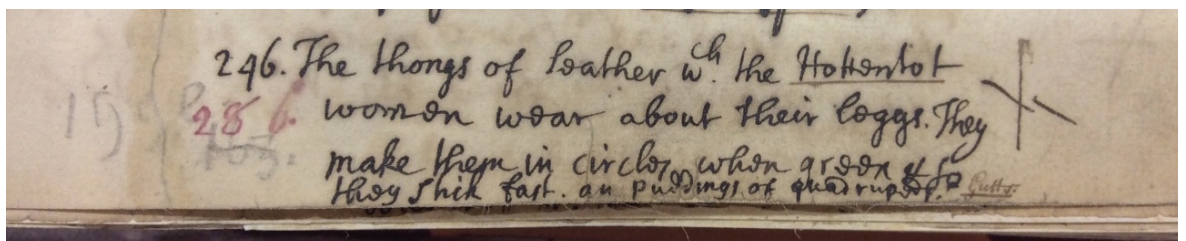 246. The thongs of leather wch. the Hottentot
286. women wear about their leggs. They
make them in circles when green & so
they stik fast. an puddings of quadrupeds. Gutts.